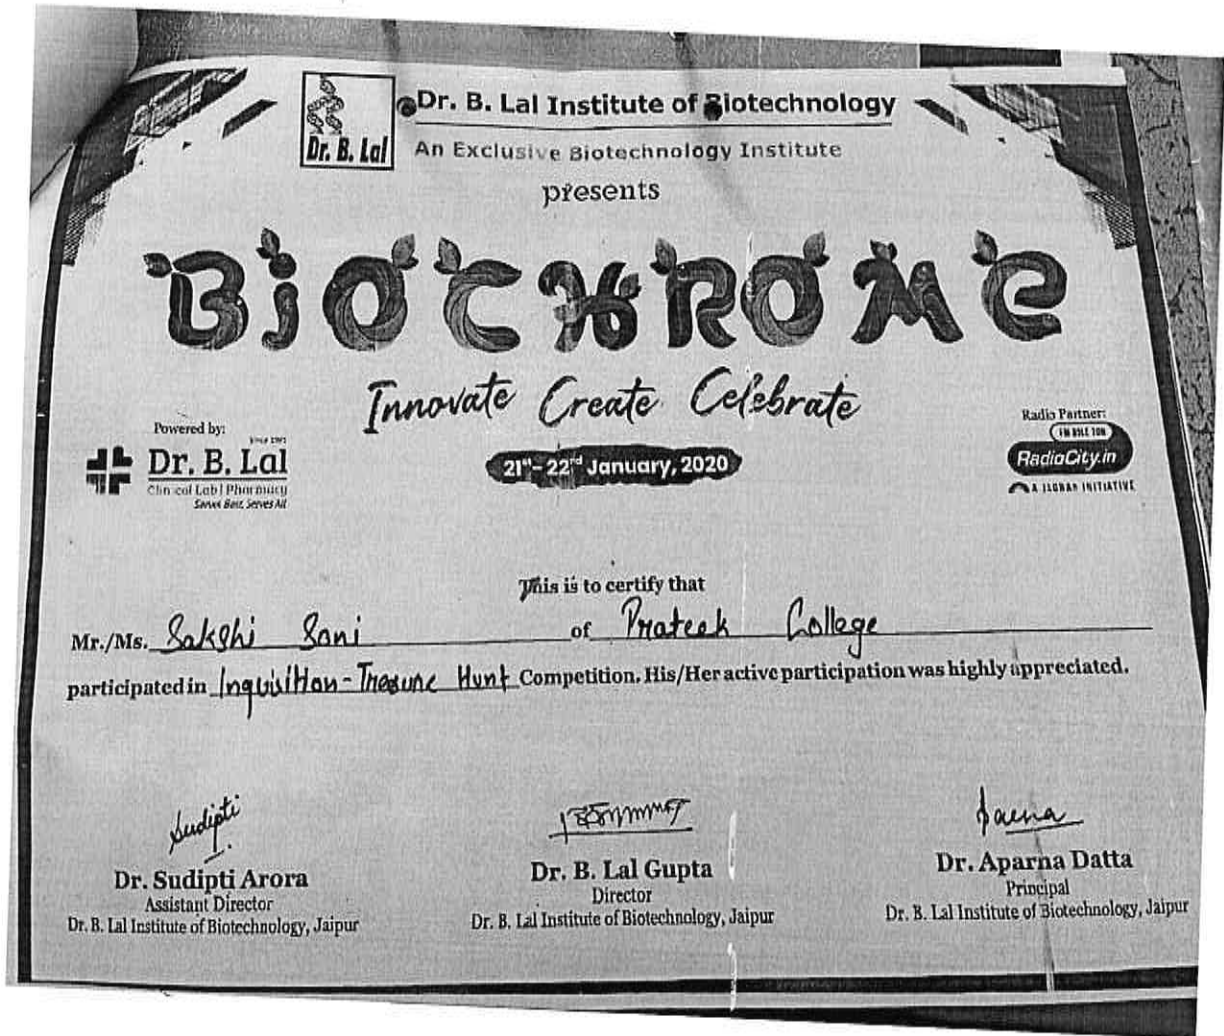 Dr. B. Lal
Dr. B. Lal Institute of Biotechnology
An Exclusive Biotechnology Institute
presents
BiOCHROMe
Innovate Create Celebrate
21st - 22nd January, 2020
Powered by:
Dr. B. Lal
Clinical Lab | Pharmacy
Serves Best, Serves All
Radio Partner:
RadioCity.in
A JAGRAN INITIATIVE
This is to certify that
Mr./Ms. Sakshi Soni of Prateek College
participated in Inquisition-Treasure Hunt Competition. His/Her active participation was highly appreciated.
Sudipti
Dr. Sudipti Arora
Assistant Director
Dr. B. Lal Institute of Biotechnology, Jaipur
Dr. B. Lal Gupta
Director
Dr. B. Lal Institute of Biotechnology, Jaipur
Dr. Aparna Datta
Principal
Dr. B. Lal Institute of Biotechnology, Jaipur